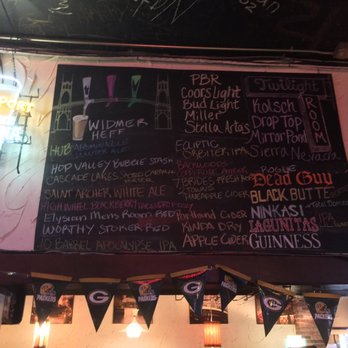 WIDMER
HEFF
HUB
HOP VALLEY BUBBLE STASH
CASCADE LAKES
SAINT ARCHER WHITE ALE
HIGH WHEEL BLACKBERRY
Elysian Mens Room Red
WORTHY STOKER RED
10 BARREL APOCALYPSE IPA
PBR
Coors Light
Bud Light
Miller
Stella Artas
ELIPTIC
ORBITER IPA
7 BRIDES
PINEAPPLE CIDER
Portland CIDER
KINDA DRY
APPLE CIDER
Twilight
ROOM
Kolsch
DROP TOP
Mirror Pond
Sierra Nevada
Rogue
DEAD GUY
BLACK BUTTE
NINKASI
LAGUNITAS
IPA
GUINNESS
PACKERS
G
PACKERS
G
PACKERS
G
PACKERS